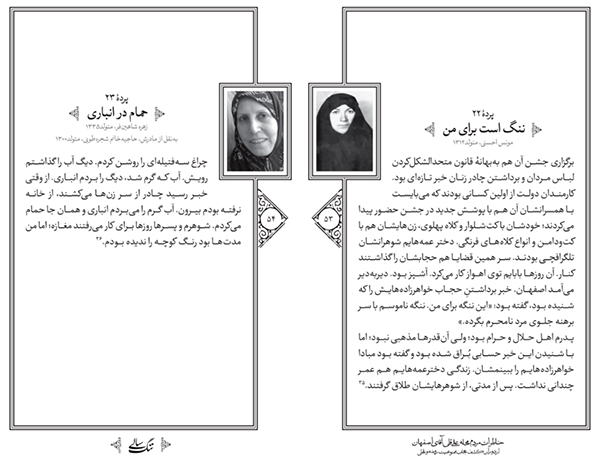 پردهٔ ۲۲
ننگ است برای من
مونس احسنی، متولد۱۳۱۲
برگزاری جشن آن هم به‌بهانهٔ قانون متحدالشکل‌کردن
لباس مردان و برداشتن چادر زنان خبر تازه‌ای بود.
کارمندان دولت از اولین کسانی بودند که می‌بایست
با همسرانشان آن هم با پوشش جدید در جشن حضور پیدا
می‌کردند؛ خودشان با کت‌شلوار و کلاه پهلوی، زن‌هایشان هم با
کت‌ودامن و انواع کلاه‌های فرنگی. دختر عمه‌هایم شوهرانشان
تلگرافچی بودند. سر همین قضایا هم حجابشان را گذاشتند
کنار. آن روزها بابایم توی اهواز کار می‌کرد. آشپز بود. دیربه‌دیر
می‌آمد اصفهان. خبر برداشتنِ حجاب خواهرزاده‌هایش را که
شنیده بود، گفته بود: «این ننگه برای من. ننگه ناموسم با سر
برهنه جلوی مرد نامحرم بگرده.»
پدرم اهل حلال و حرام بود؛ ولی آن‌قدرها مذهبی نبود؛ اما
با شنیدن این خبر حسابی بُراق شده بود و گفته بود مبادا
خواهرزاده‌هایم را ببینمشان. زندگی دخترعمه‌هایم هم عمر
چندانی نداشت. پس از مدتی، از شوهرهایشان طلاق گرفتند.۲۵
۵۳
خاطرات مردم محله علیقلی آقای اصفهان
پردهٔ ۲۳
حمام در انباری
زهره شاهین‌فر، متولد۱۳۳۵
به‌نقل از مادرش، حاجیه‌خانم شجره‌طوبی، متولد۱۳۰۰
چراغ سه‌فتیله‌ای را روشن کردم. دیگ آب را گذاشتم
رویش. آب که گرم شد، دیگ را بردم انباری. از وقتی
خبر رسید چادر از سر زن‌ها می‌کشند، از خانه
نرفته بودم بیرون. آب گرم را می‌بردم انباری و همان جا حمام
می‌کردم. شوهرم و پسرها روزها برای کار می‌رفتند مغازه؛ اما من
مدت‌ها بود رنگ کوچه را ندیده بودم.۲۶
۵۴
ننگ سالی